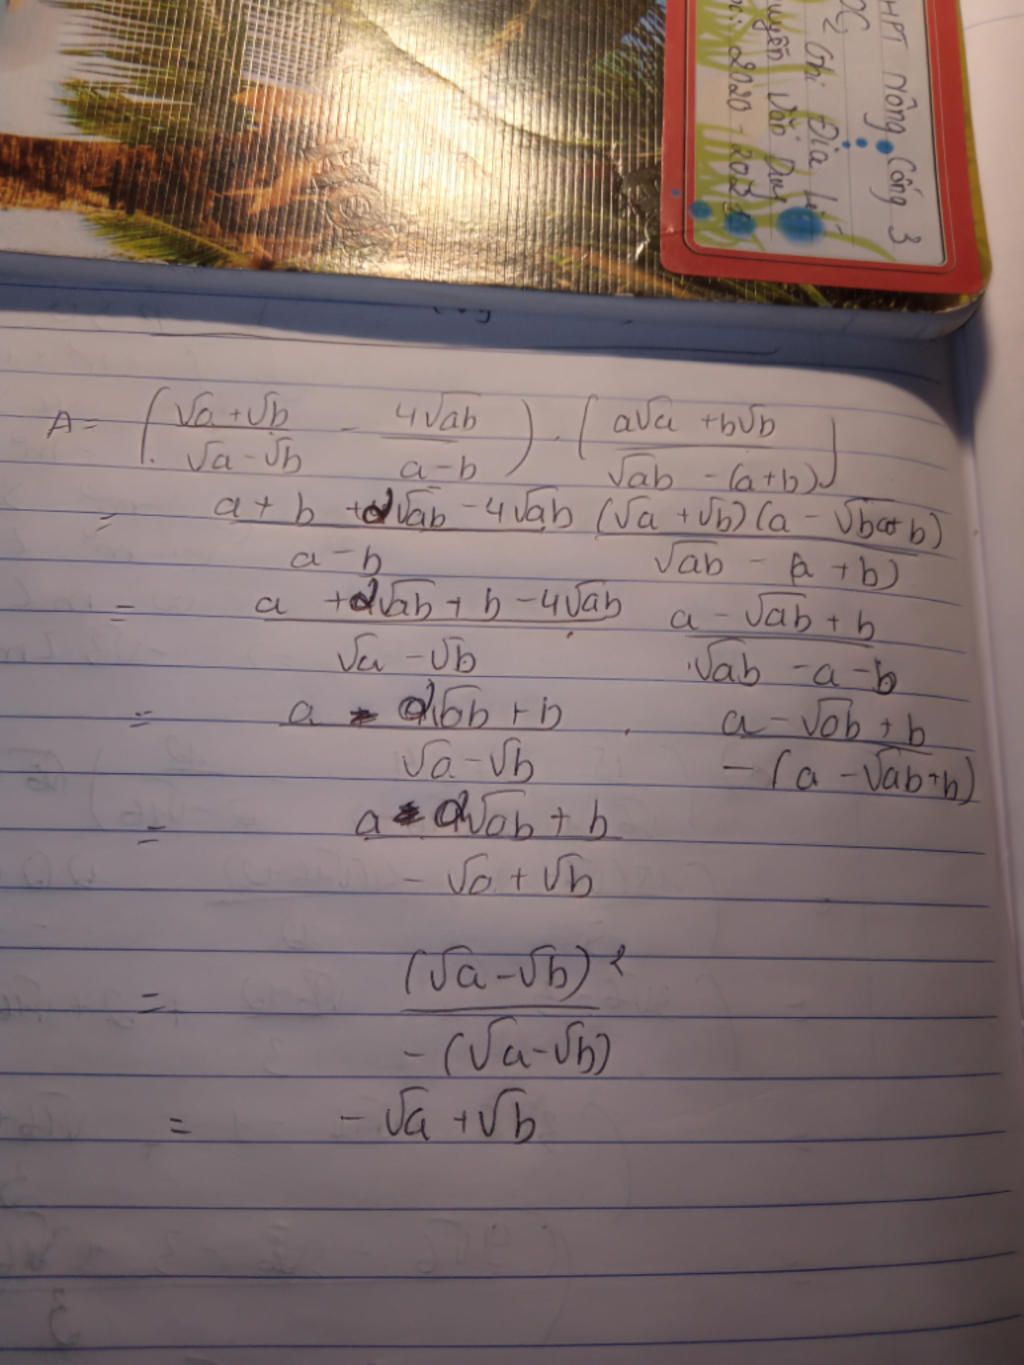 HPT Nông Cống 3
Ghi Địa lí
uyễn Văn Duy
: 2020 - 202
A = (√a + √b / √a - √b - 4√ab / a - b) . (a√a + b√b / √ab - (a + b))
= a + b + 2√ab - 4√ab / a - b (√a + √b)(a - √ba + b) / √ab - (a + b)
= a + 2√ab + b - 4√ab / √a - √b . a - √ab + b / √ab - a - b
= a - 2√ab + b / √a - √b . a - √ab + b / - (a - √ab + b)
= a - 2√ab + b / - √a + √b
= (√a - √b)² / - (√a - √b)
= - √a + √b